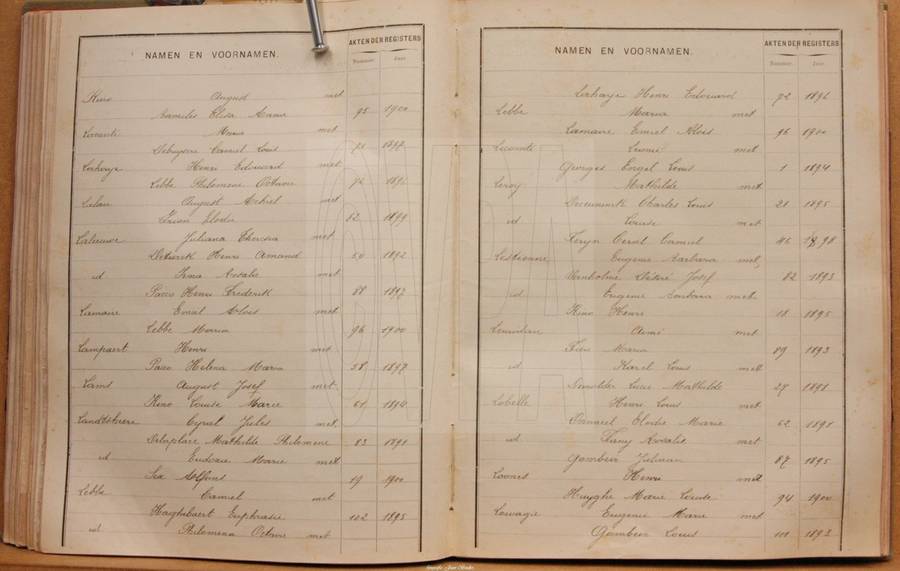 NAMEN EN VOORNAMEN.
AKTEN DER REGISTERS
Nummer Jaar
Kino August met
Camilis Elisa Anna 95 1900
Anna met
Debuysere Camiel Louis 1897
Lahaye Henri Edouard met
Lebbe Philomene Octavie 72 1896
Lalau August Achiel met
Elodie 82 1899
Laleeuwe Juliana Theresia met
Henri Amand 50 1892
id Irma Rosalie met
Pacco Henri Frederik 88 1897
Lamaire Emiel Alois met
Lebbe Maria 96 1900
Lampaert Henri met
Pacco Helena Maria 58 1897
Lams August Josef met
Kino Louise Marie 61 1894
Landtsheere Cyriel Jules met
Delaplace Mathilde Philomene 83 1898
id Eudoxie Marie met
Sex Alfons 19 1900
Lebbe Camiel met
Haghebaert Euphrasie 102 1895
id Philomena Octavie met
NAMEN EN VOORNAMEN.
AKTEN DER REGISTERS
Nummer Jaar
Lahaye Henri Edouard 72 1896
Lebbe Maria met
Lamaire Emiel Alois 96 1900
Lecomte Leonie met
Georges Engel Louis 1 1894
Leroy Mathilde met
Charles Louis 28 1895
id Louise met
Feryn Camiel 46 1898
Lestienne Eugenie Barbara met
Désiré Josef 82 1893
id Eugenie Barbara met
Kino Henri 18 1895
Aimé met
Maria 89 1893
id Karel Louis met
Lucie Mathilde 27 1898
Lobelle Henri Louis met
Elodie Marie 62 1898
id Fanny Rosalie met
Gombeir Juliaan 87 1895
Loones Henri met
Huyghe Marie Louise 94 1900
Lowagie Eugenie Marie met
Gombeir Louis 101 1893